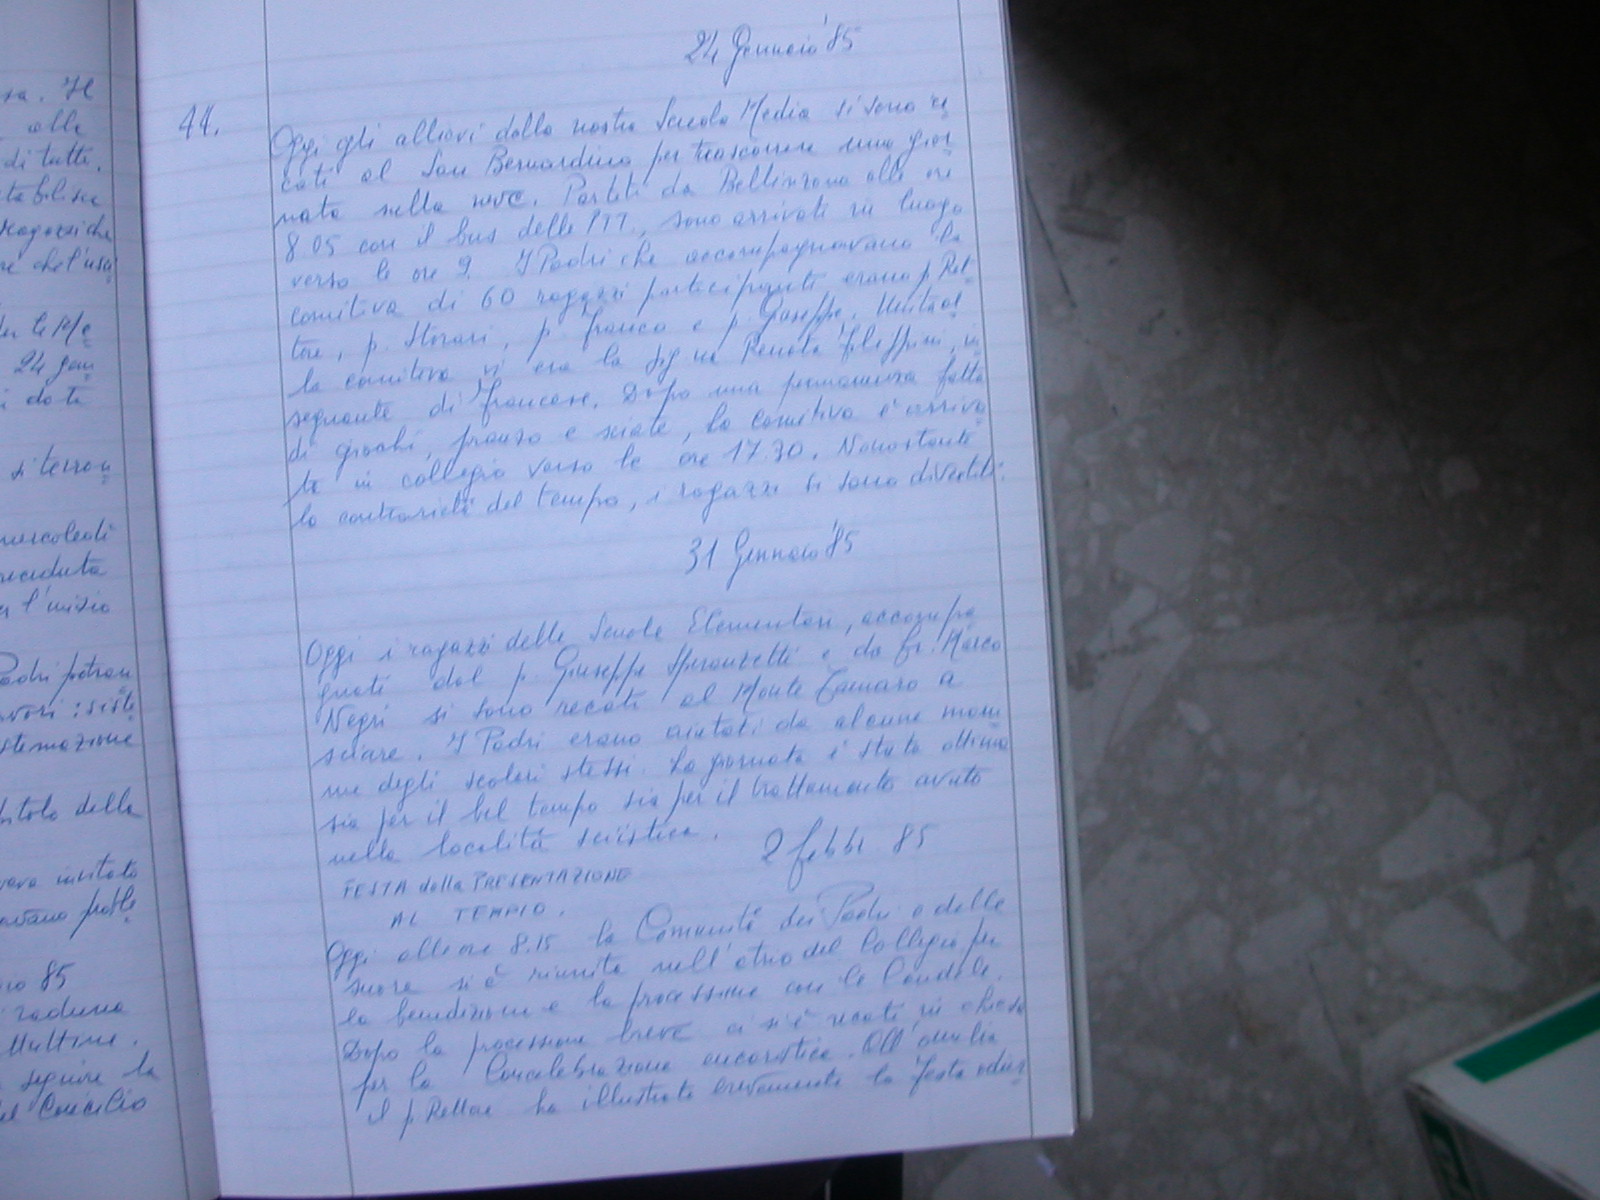 sa. Il
alle
di tutti.
stabilisce
ragazzi che
re che l'usa
per le Me
24 gen
i da te
si terran
mercoledì
seduta
l'inizio
Padri potran
lavori: siste
stemazione
Capitolo della
aveva invitato
85
raduna
Multime.
seguire la
del Concilio
24 Gennaio '85
44.
Oggi gli allievi della nostra Scuola Media si sono re
cati al San Bernardino per trascorrere una gior
nata sulla neve. Partiti da Bellinzona alle ore
8.05 con il bus delle PTT, sono arrivati in luogo
verso le ore 9. I Padri che accompagnavano la
comitiva di 60 ragazzi participanti erano p. Ret-
tore, p. Storari, p. Franco e p. Giuseppe. Unita al
la comitiva vi era la sig.na Renata Filippini, in
segnante di francese. Dopo una permanenza fatta
di giochi, pranzo e sciate, la comitiva è arriva
ta in collegio verso le ore 17.30. Nonostante
la contrarietà del tempo, i ragazzi si sono divertiti.
31 Gennaio '85
Oggi i ragazzi delle Scuole Elementari, accompa
gnati dal p. Giuseppe Speranzetti e da fr. Marco
Negri si sono recati al Monte Tamaro a
sciare. I Padri erano aiutati da alcune mam
me degli scolari stessi. La giornata è stata ottima
sia per il bel tempo sia per il trattamento avuto
nella località sciistica.
2 febbr 85
FESTA della PRESENTAZIONE
AL TEMPIO.
Oggi alle ore 8.15 la Comunità dei Padri e delle
suore si è riunita nell'atrio del Collegio per
la benedizione e la processione con le Candele.
Dopo la processione breve ci si è recati in chiesa
per la Concelebrazione eucaristica. All'omelia
il p. Rettore ha illustrato brevemente la festa odier